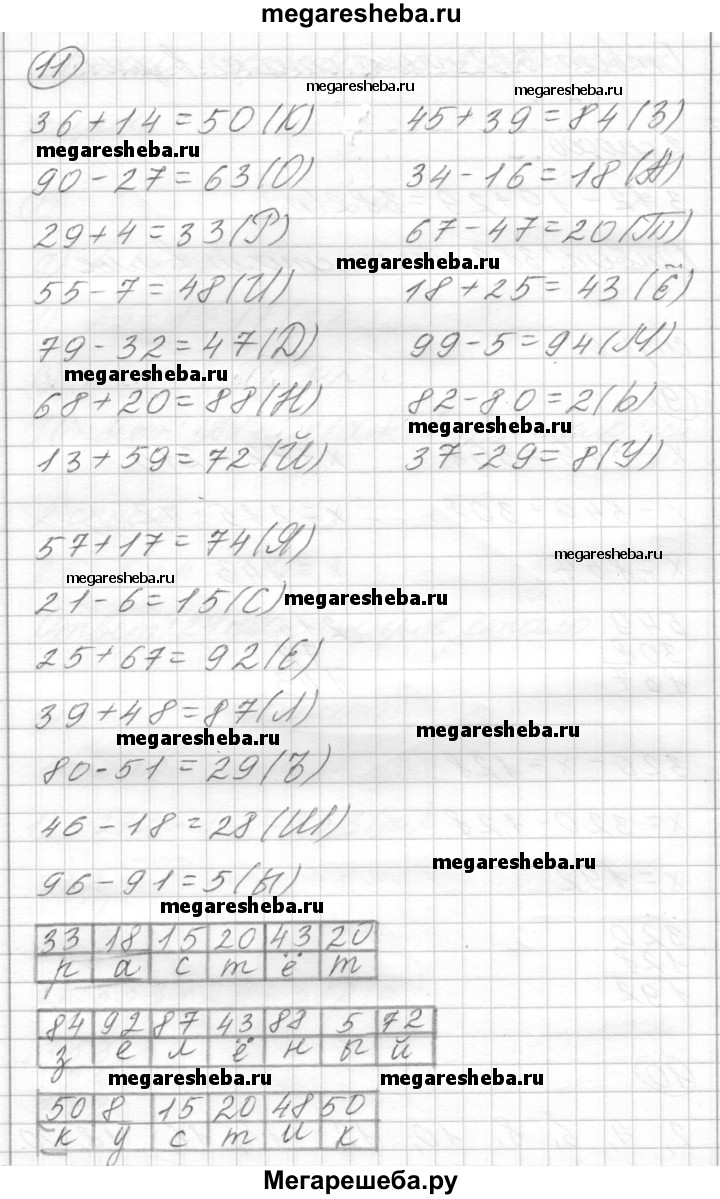 megaresheba.ru
11
megaresheba.ru megaresheba.ru
36+14=50(К) 45+39=84(З)
megaresheba.ru
90-27=63(О) 34-16=18(А)
29+4=33(Р) 67-47=20(Т)
megaresheba.ru
55-7=48(И) 18+25=43(Ё)
79-32=47(D) 99-5=94(М)
megaresheba.ru
68+20=88(Н) 82-80=2(Ь)
megaresheba.ru
13+59=72(Й) 37-29=8(У)
57+17=74(Я)
megaresheba.ru
megaresheba.ru
21-6=15(С) megaresheba.ru
25+67=92(Е)
39+48=87(Л)
megaresheba.ru megaresheba.ru
80-51=29(Ъ)
46-18=28(Ш)
megaresheba.ru
96-91=5(Ы)
megaresheba.ru
33 18 15 20 43 20
р а с т ё т
84 92 87 43 88 5 72
з е л ё н ы й
megaresheba.ru megaresheba.ru
50 8 15 20 48 50
к у с т и к
Мегарешеба.ру